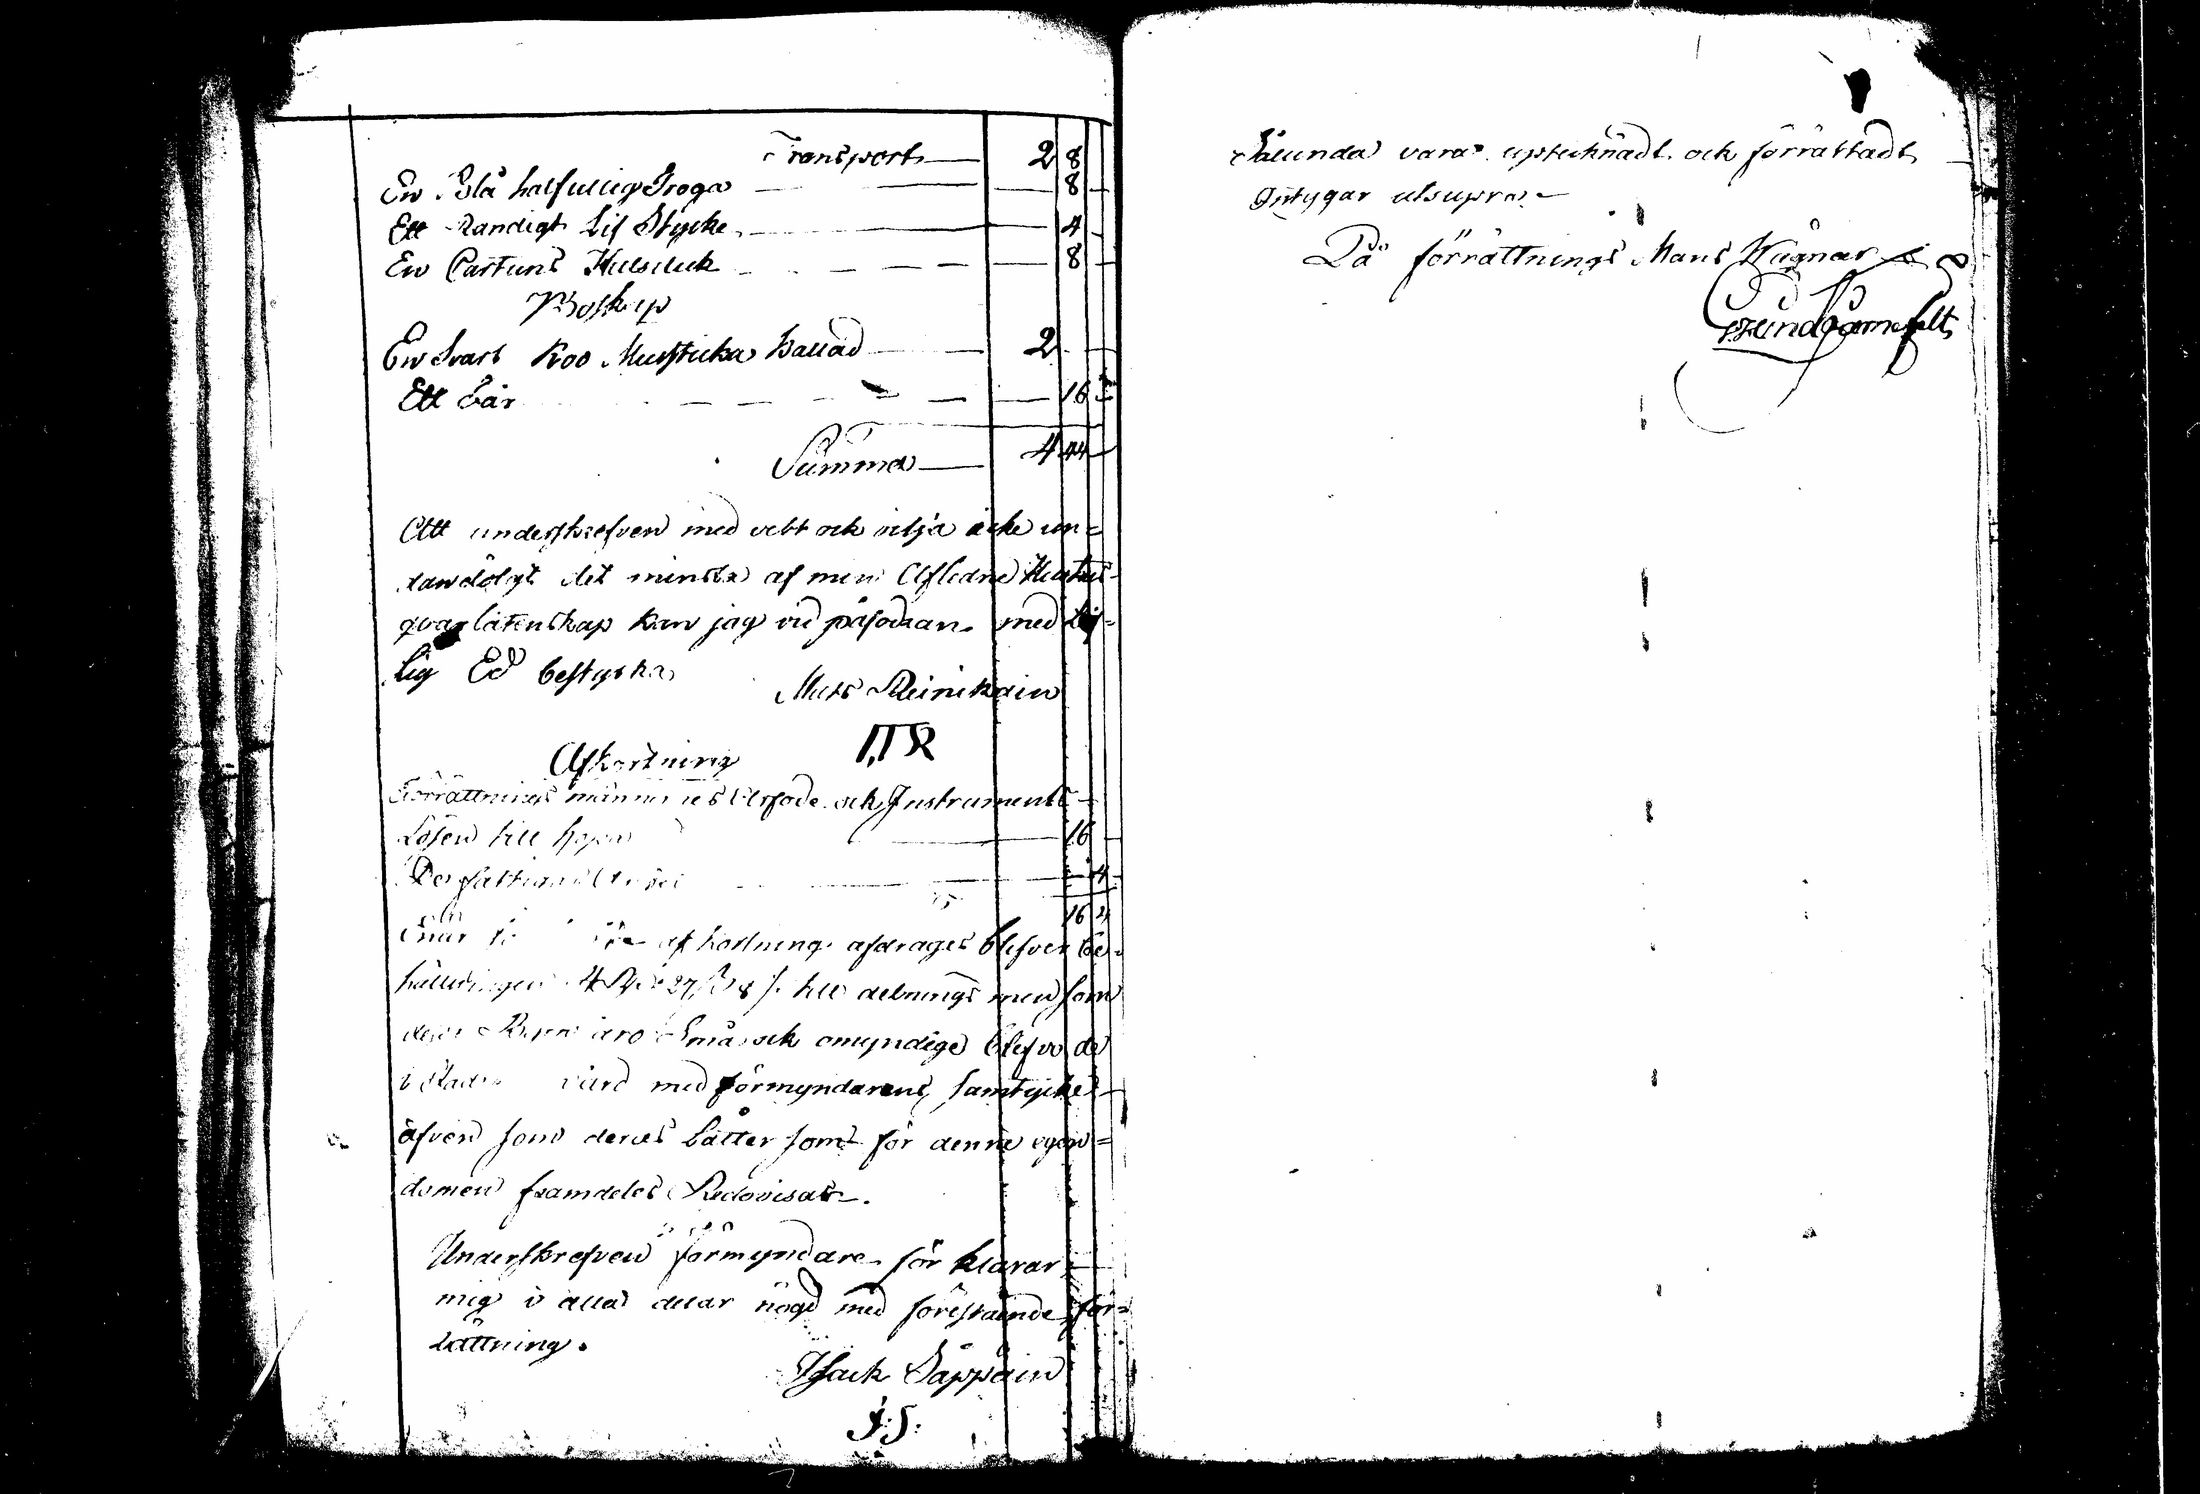 Transport 2 8
En Blå halfullig Tröga 8
Ett Randigt Lif Stycke 4
En Cartuns Halsduk 8
Boskap
En Svart Koo Musticka kallad 2
Ett Får 16
Summa 4 44
Att underskrefven med vett ock vilja icke un=
dandölgt det minsta af min Afledne Hustrus
qvarlåtenskap kan jag vid påfodran med Lif=
lig Ed bestyrka
Mats Reinikain
MR
Afkortning
Förrättnings männernes Arfode ock Instruments
Lösen till hopa 16
De fattigas Andel 4
16 4
När afkortning afdrages blifver be=
hållningen 4 R 27 ß 8 till delnings men som
desse Barn äro Små ock omyndige blefvo de
i Faders vård med förmyndarens samtycke
äfven som deras Låtter som för denne egen=
domen framdeles Redovisar.
Underskrefven förmyndare för klarar
mig i alla delar nögd med förestående för=
rättning.
Isack Säppäin
I:S:
Sålunda vara uptecknadt ock förrättadt
Intygar utsupra
På förrättnings Mans Wägnar